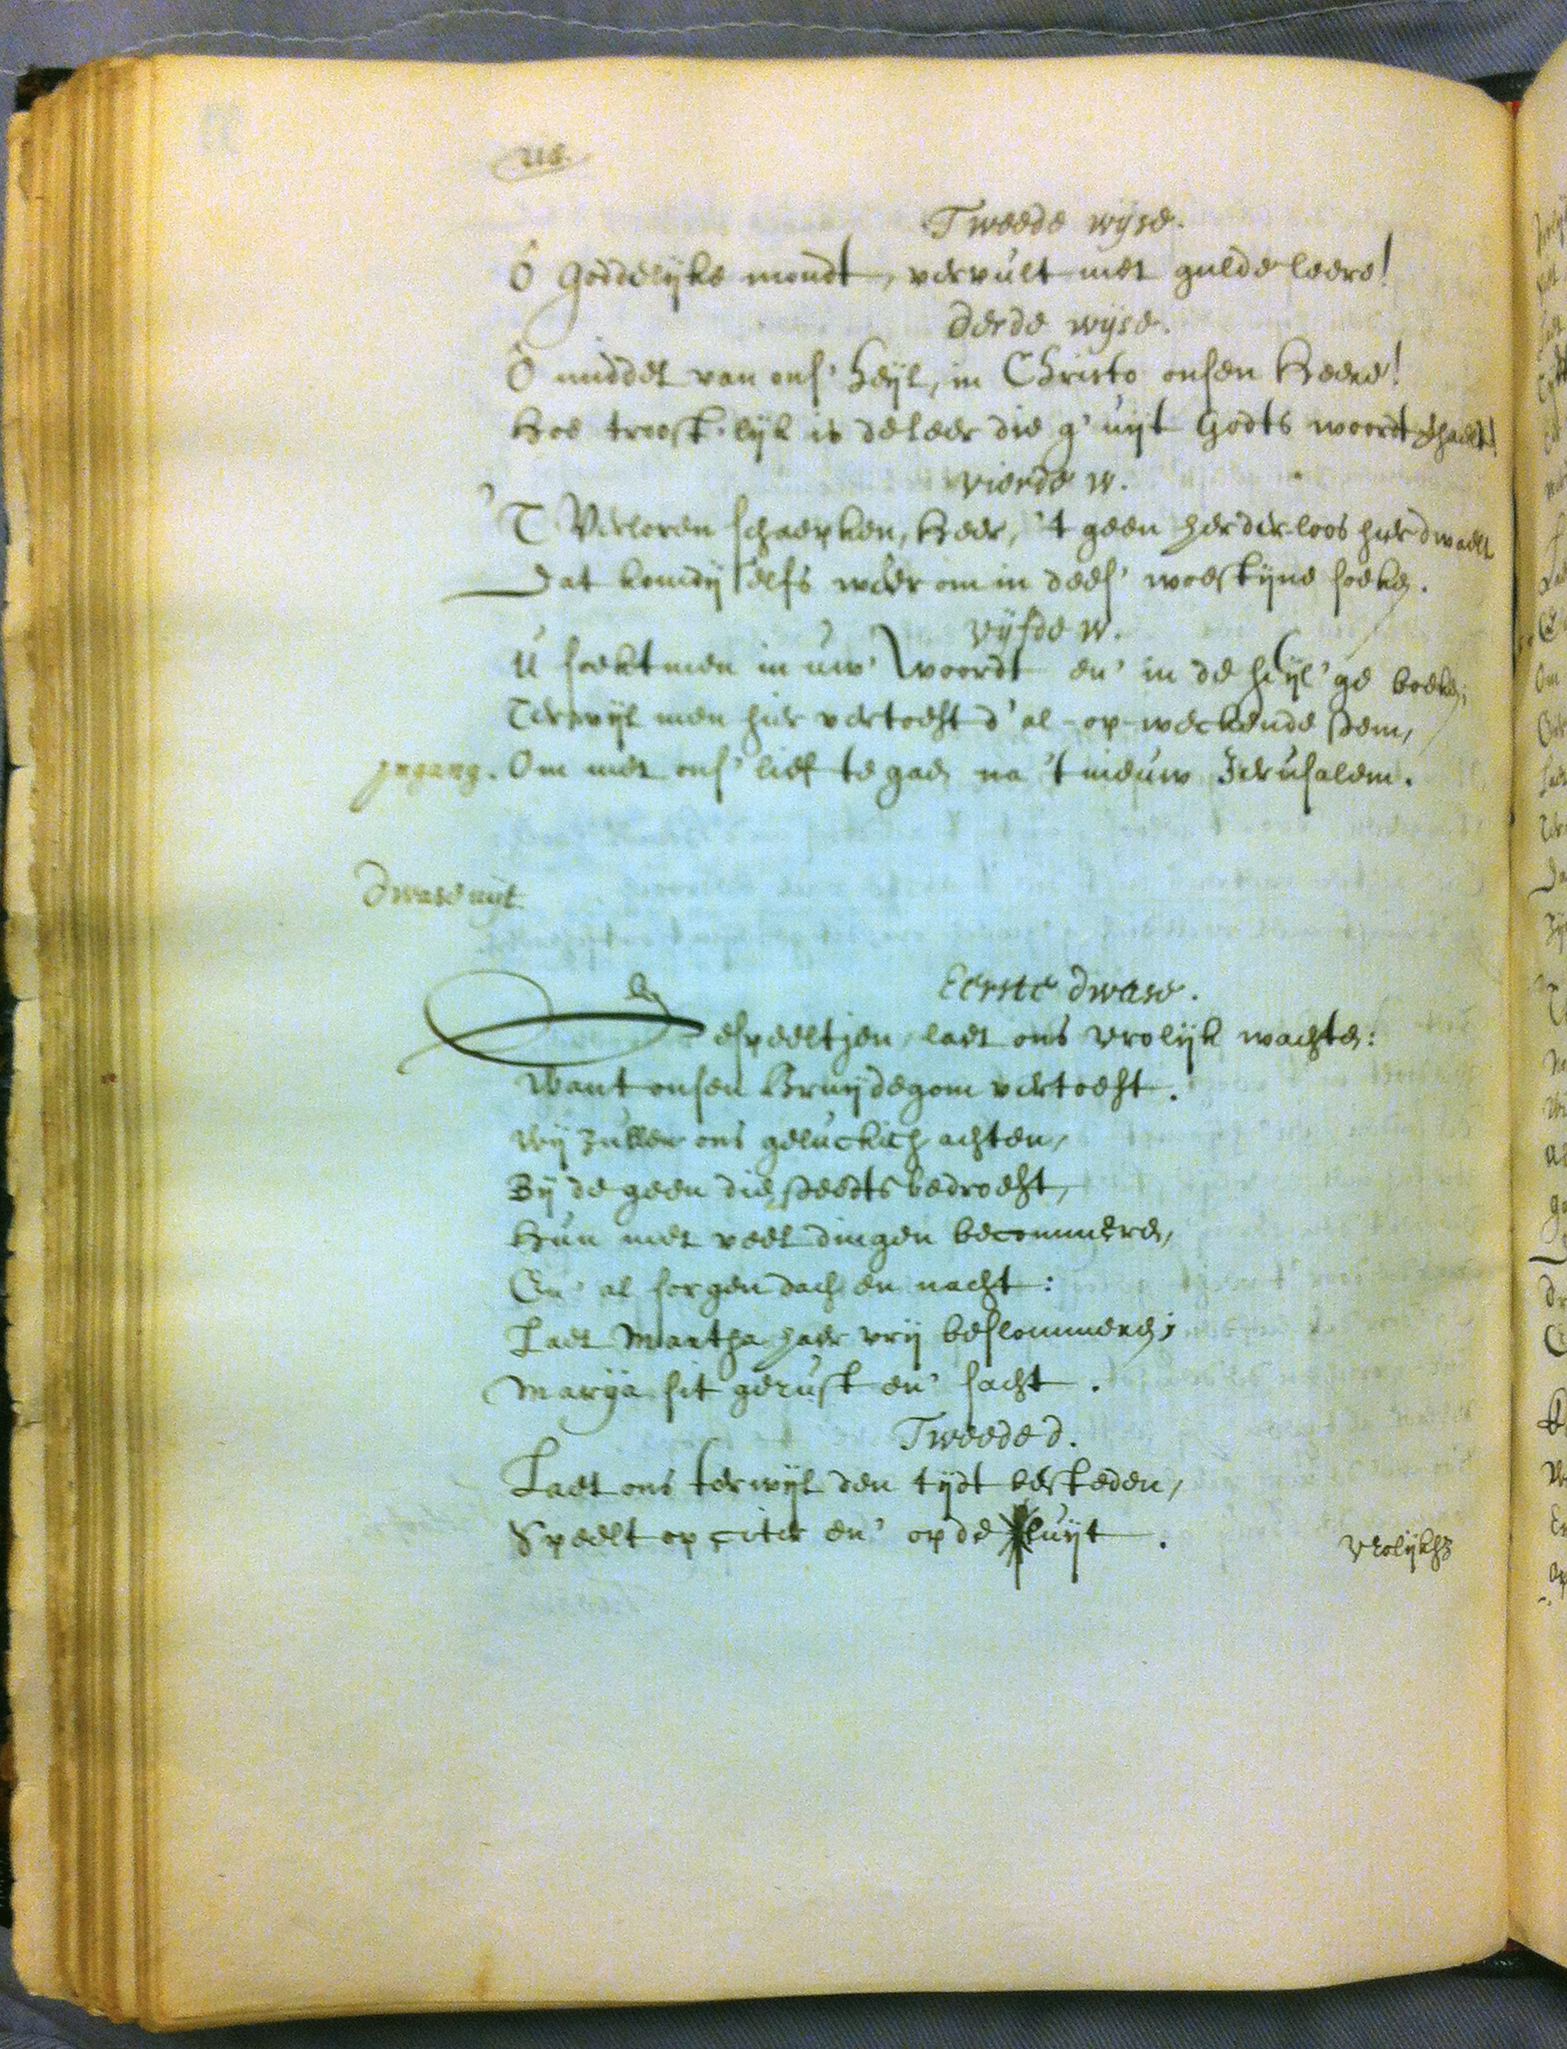 Tweede wijse.
Ô Goddelijke mondt, vervult met gulde leere!
Derde wijse.
Ô middel van ons' heijl, in Christo onsen Heere!
Hoe troost-lijk is de leer die g' uijt Godts woordt haelt!
Vierde w.
'T Verloren schaepken, Heer, 't geen herderloos hier dwaelt
Dat komdij selfs weer om in dees' woestijne soeken.
Vijfde w.
U soektmen in uw' woordt en' in de heijl'ge boeken;
Terwijl men hier vertoeft d'al-op-weckende stem,
Ingang. Om met ons' lief te gaen na 't nieuw Jerusalem.
Dwase uijt
Eerste dwase.
Gespeeltjen laet ons vrolijk wachten:
Want onsen Bruijdegom vertoeft.
Wij zullen ons geluckich achten,
Bij de geen die steedts bedroeft,
Hun met veel dingen becommeren,
En' al sorgen dach en nacht:
Laet Martha haer vrij beslommeren;
Marija sit gerust en' sacht.
Tweede d.
Laet ons terwijl den tijdt besteden,
Speelt op citer en' op de fluijt.